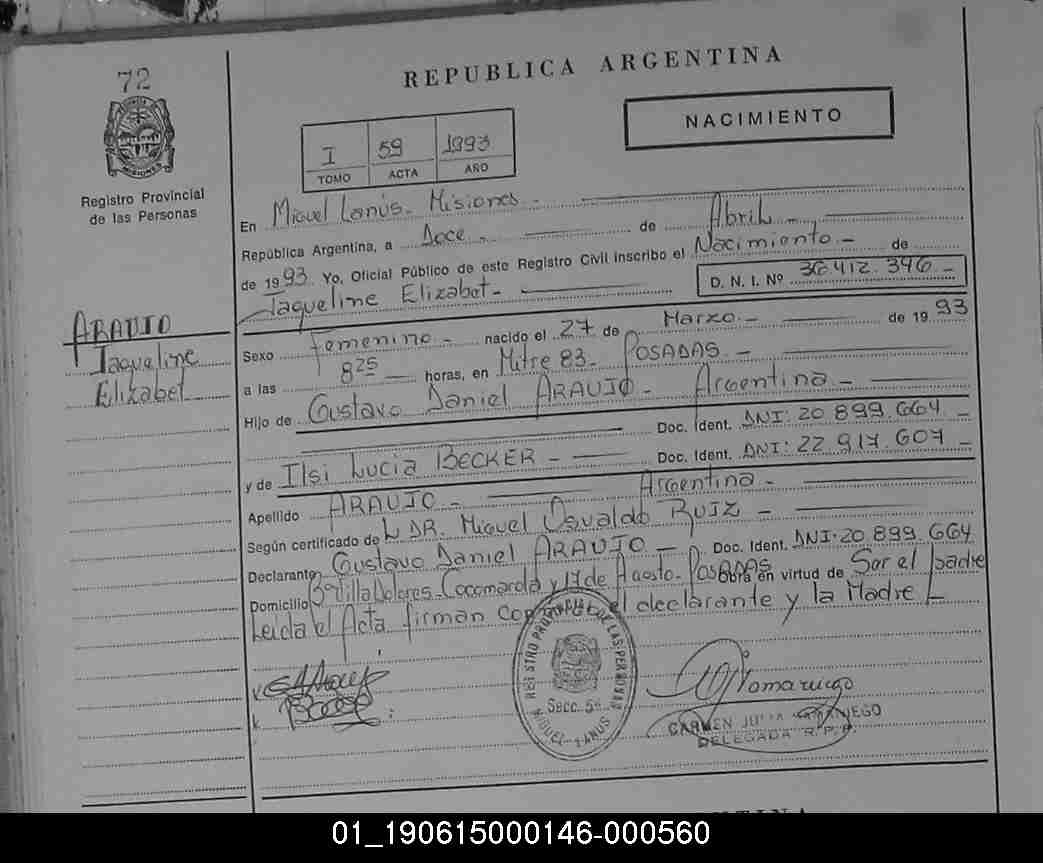 72
REPUBLICA ARGENTINA
NACIMIENTO
I 59 1993
TOMO ACTA AÑO
Registro Provincial
de las Personas
En Miguel Lanús - Misiones -
República Argentina, a Doce - de Abril -
de 1993 Yo, Oficial Público de este Registro Civil inscribo el Nacimiento - de
Jaqueline Elizabet - D. N. I. Nº 36.412.396 -
ARAUJO
Jaqueline
Elizabet
Sexo Femenino - nacido el 27 de Marzo - de 1993
a las 8 25 horas, en Mitre 83 - POSADAS -
Hijo de Gustavo Daniel ARAUJO - Argentina -
Doc. Ident. DNI: 20 899.664 -
y de Ilsi Lucia BECKER - Doc. Ident. DNI: 22 917.607 -
Apellido ARAUJO - Argentina -
Según certificado de L DR. Miguel Osvaldo RUIZ -
Declarante Gustavo Daniel ARAUJO - Doc. Ident. DNI. 20.899.664
Domicilio Bº Villa Dolores - Cocomarola y 17 de Agosto - POSADAS Obra en virtud de Ser el padre
Leida el Acta firman el declarante y la Madre
REGISTRO PROVINCIAL DE LAS PERSONAS
Secc. 5ª
MIGUEL LANUS
CARMEN JULIA SAMANIEGO
DELEGADA R.P.P.
01_190615000146-000560